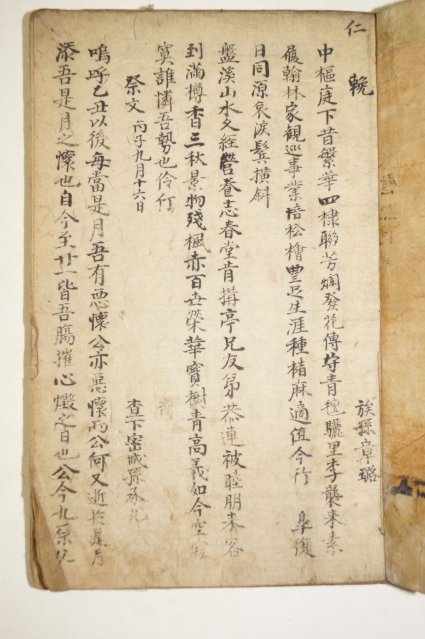 仁
輓 族孫章璐
中樞庭下昔繁華四棣聯芳爛發花傳守青氊驪里李襲來素
履翰林家觀巡事業培松檜豊足生涯種楮麻適值今行 皐復
日同源哀淚鬂橫斜
盤溪山水久經營眷志春堂肯搆亭兄友弟恭連被睡朋來客
到滿樽香三秋景物殘楓赤百世榮華寶樹青高義如今空寂
寞誰憐吾勢也伶仃
祭文 丙子九月十六日 査下密城孫永九
嗚呼乙丑以後每當是月吾有悪懷公亦悪懷而公何又逝於是月
添吾是月之懷也自今至廿一皆吾腸摧心燬之日也公今九原